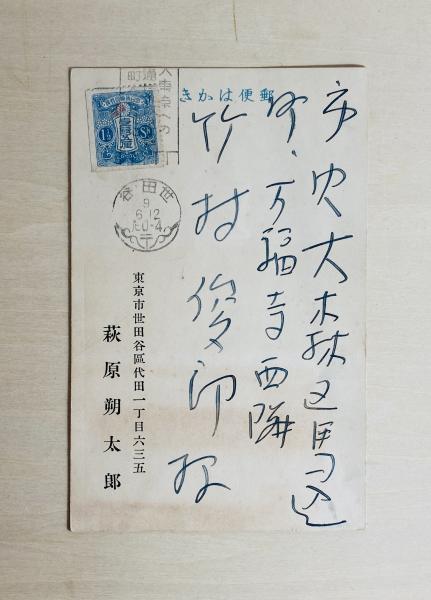 郵便はかき
市内大森区馬込
町、万福寺西隣
竹村俊郎様
東京市世田谷區代田一丁目六三五
萩原朔太郎
世田谷
9
6.12
1½ Sn